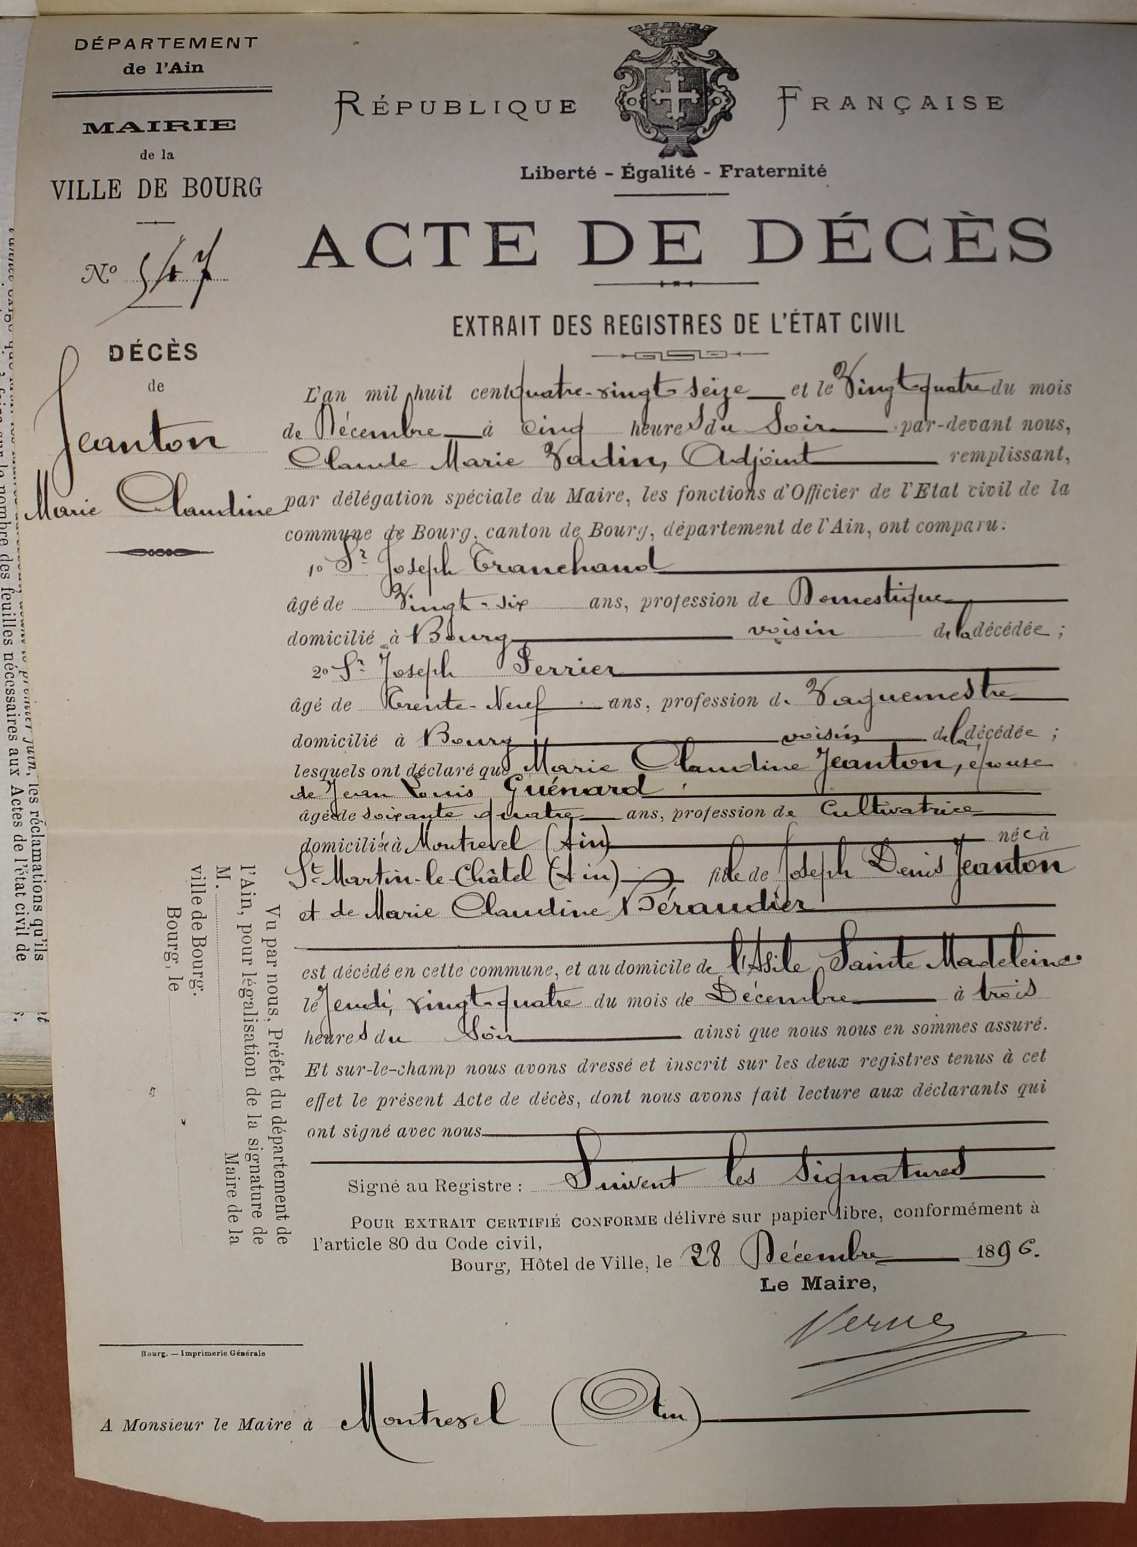 DÉPARTEMENT
de l'Ain
MAIRIE
de la
VILLE DE BOURG
N° 547
DÉCÈS
de
Jeanton
Marie Claudine
RÉPUBLIQUE FRANÇAISE
Liberté - Égalité - Fraternité
ACTE DE DÉCÈS
EXTRAIT DES REGISTRES DE L'ÉTAT CIVIL
L'an mil huit cent quatre-vingt seize et le Vingt quatre du mois
de Décembre à cinq heures du Soir par-devant nous,
Claude Marie Vadin, Adjoint remplissant,
par délégation spéciale du Maire, les fonctions d'Officier de l'Etat civil de la
commune de Bourg, canton de Bourg, département de l'Ain, ont comparu:
1o Sr Joseph Tranchand
âgé de Vingt-six ans, profession de Domestique
domicilié à Bourg voisin de la décédée;
2o Sr Joseph Perrier
âgé de Trente-Neuf ans, profession de Vaguemestre
domicilié à Bourg voisin de la décédée;
lesquels ont déclaré que Marie Claudine Jeanton, épouse
de Jean Louis Guénard,
âgée de soixante quatre ans, profession de Cultivatrice
domiciliée à Montrevel (Ain) née à
St Martin-le-Châtel (Ain) fille de Joseph Denis Jeanton
et de Marie Claudine Béraudier
est décédé en cette commune, et au domicile de l'Asile Sainte Madeleine
le Jeudi, vingt-quatre du mois de Décembre à trois
heures du Soir ainsi que nous nous en sommes assuré.
Et sur-le-champ nous avons dressé et inscrit sur les deux registres tenus à cet
effet le présent Acte de décès, dont nous avons fait lecture aux déclarants qui
ont signé avec nous
Signé au Registre: Suivent les signatures
POUR EXTRAIT CERTIFIÉ CONFORME délivré sur papier libre, conformément à
l'article 80 du Code civil,
Bourg, Hôtel de Ville, le 28 Décembre 1896.
Le Maire,
Verne
Vu par nous, Préfet du département de
l'Ain, pour légalisation de la signature de
M. Maire de la
ville de Bourg.
Bourg, le
Bourg. — Imprimerie Générale
A Monsieur le Maire à Montrevel (Ain)
les réclamations qu'ils
le nombre des feuilles nécessaires aux Actes de l'état civil de